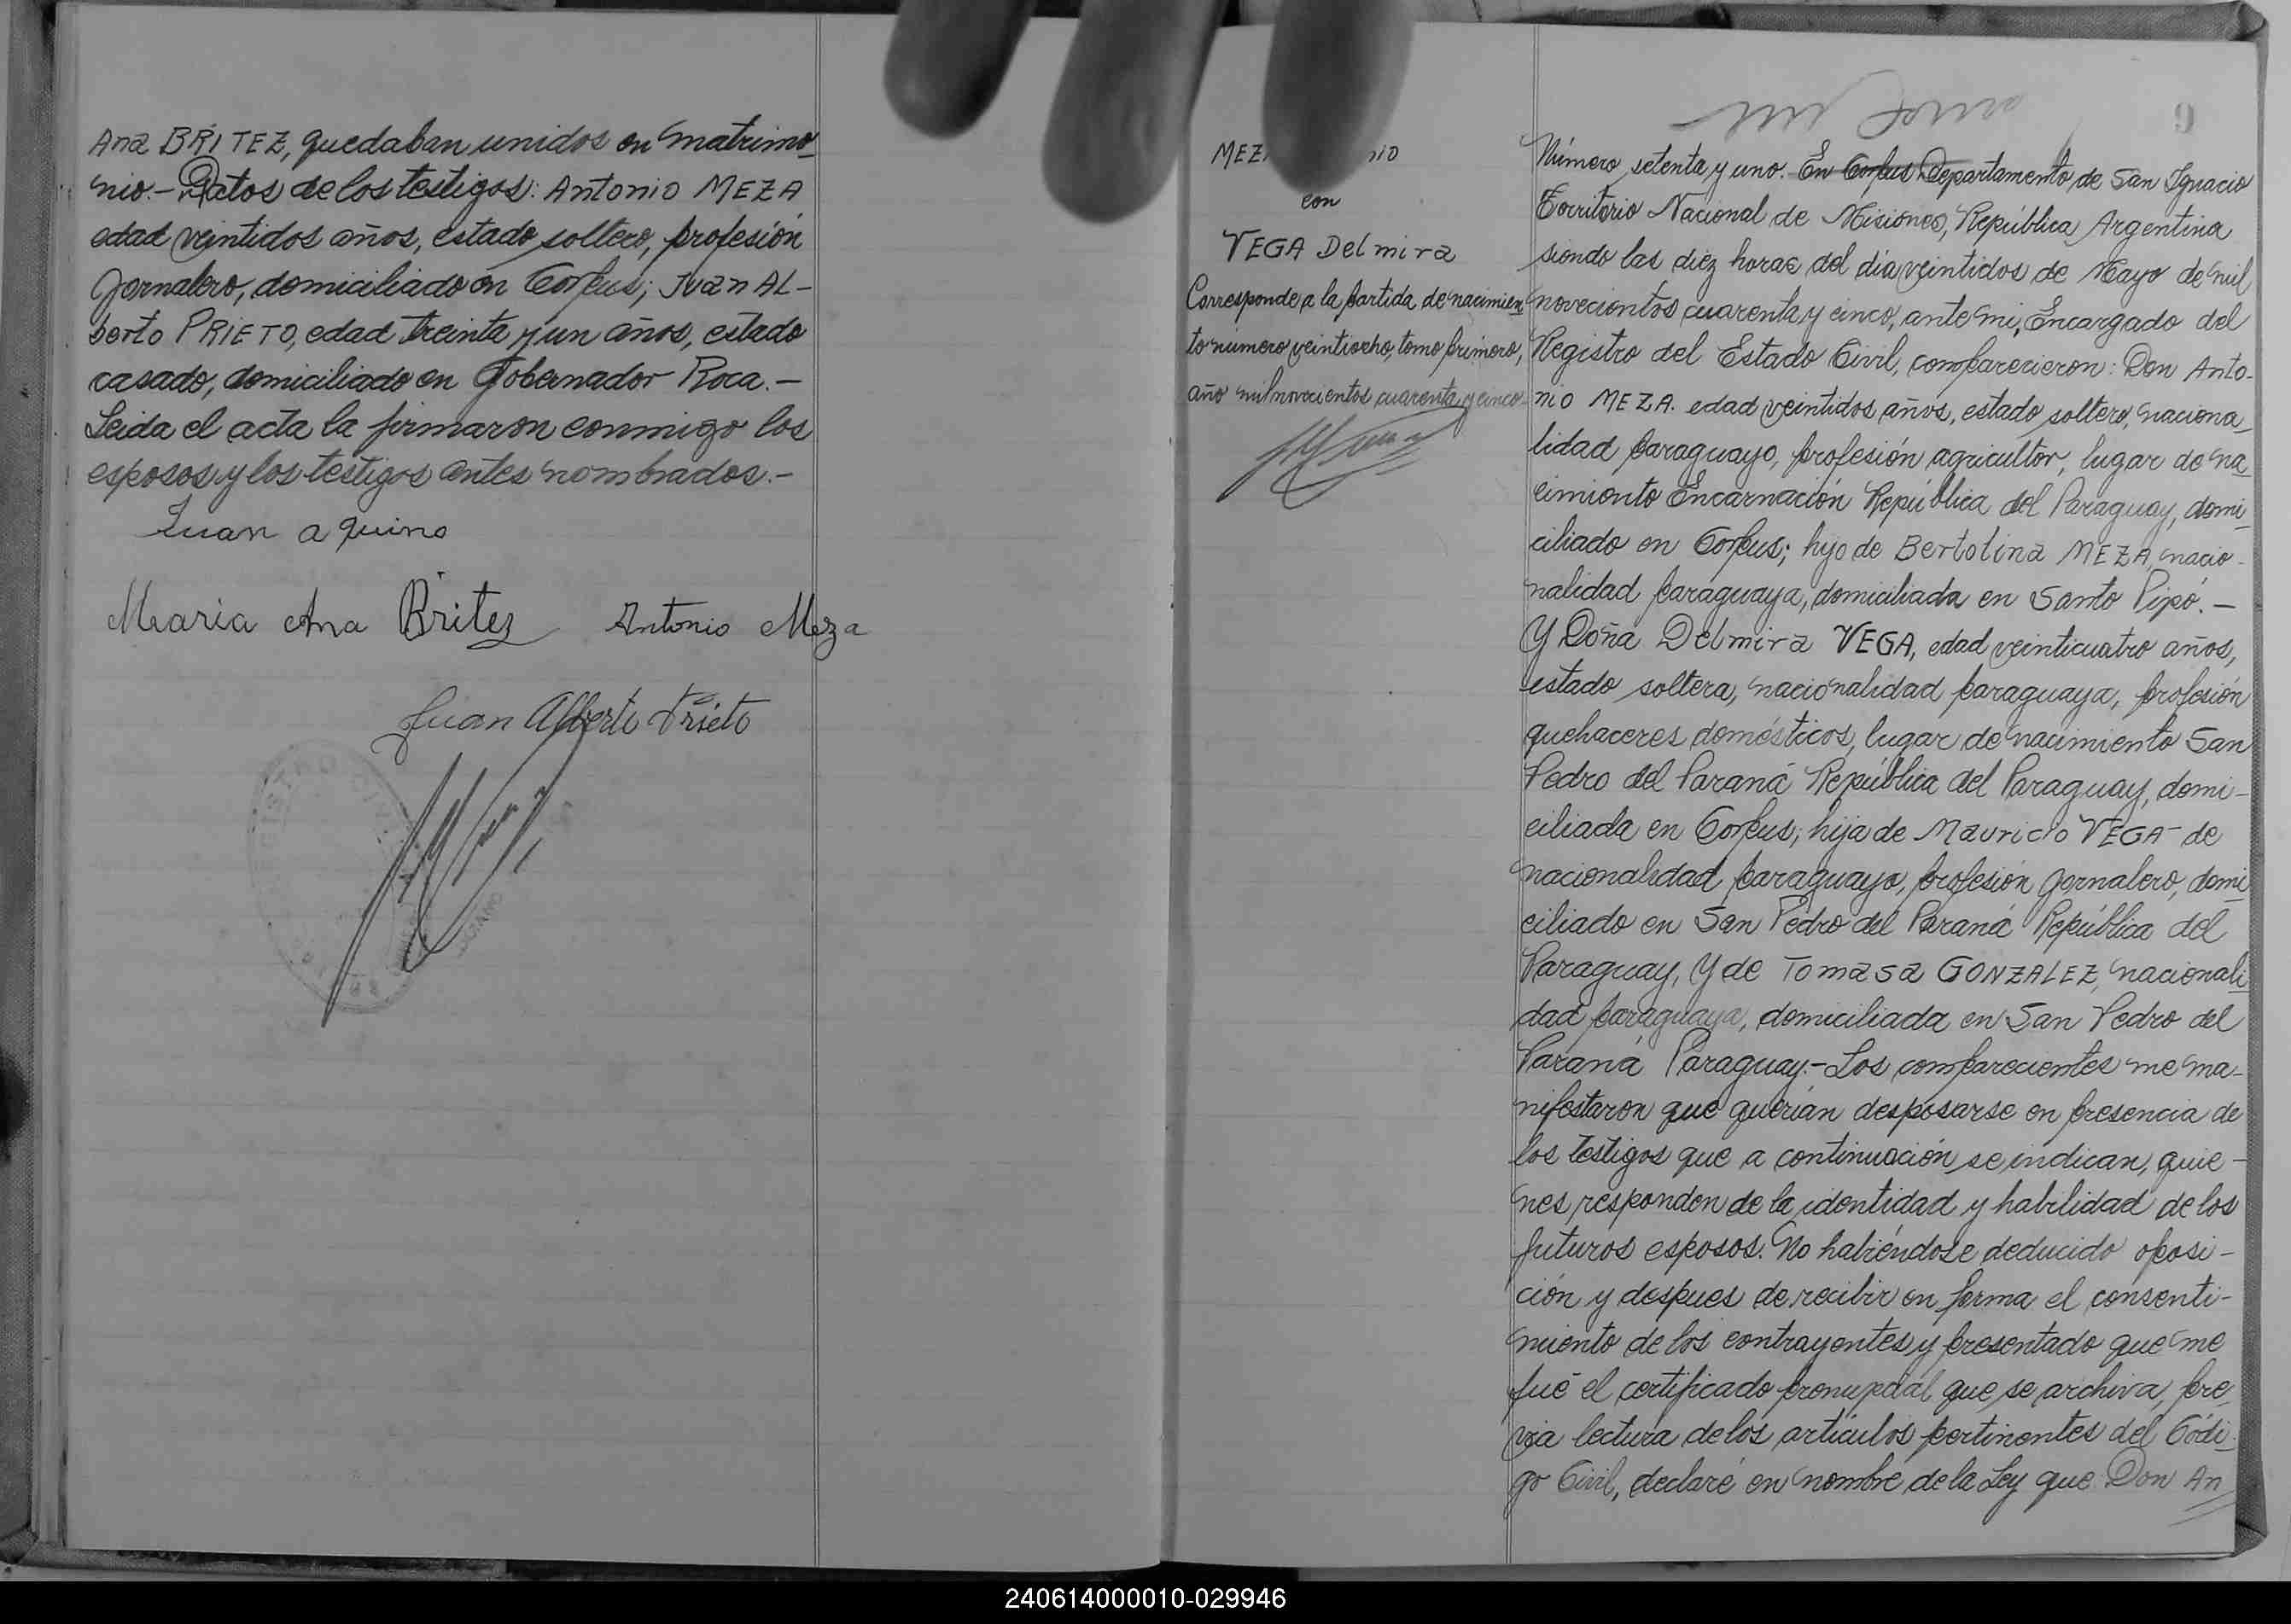 Ana BRITEZ, quedaban unidos en matrimo-
nio.- Datos de los testigos: Antonio MEZA
edad veintidos años, estado soltero, profesión
Jornalero, domiciliado en Corpus; Juan AL-
berto PRIETO, edad treinta y un años, estado
casado, domiciliado en Gobernador Roca.-
Leida el acta la firmaron conmigo los
esposos y los testigos antes nombrados.-
Juan aquino
Maria Ana Britez Antonio Meza
Juan Alberto Prieto
9
con
VEGA Delmira
Corresponde a la partida de nacimien-
to número veintiocho, tomo primero,
año mil novecientos cuarenta y cinco-
Número setenta y uno. En Corpus Departamento de San Ignacio
Territorio Nacional de Misiones, República Argentina
siendo las diez horas del dia veintidos de Mayo de mil
novecientos cuarenta y cinco, ante mi, Encargado del
Registro del Estado Civil, comparecieron: Don Anto-
nio MEZA. edad veintidos años, estado soltero, naciona-
lidad paraguayo, profesión agricultor, lugar de na-
cimiento Encarnación República del Paraguay, domi-
ciliado en Corpus; hijo de Bertolina MEZA, nacio-
nalidad paraguaya, domiciliada en Santo Pipó.-
Y Doña Delmira VEGA, edad veinticuatro años,
estado soltera, nacionalidad paraguaya, profesión
quehaceres domésticos, lugar de nacimiento San
Pedro del Paraná República del Paraguay, domi-
ciliada en Corpus; hija de Mauricio VEGA- de
nacionalidad paraguayo, profesión Jornalero, domi-
ciliado en San Pedro del Paraná República del
Paraguay, Y de Tomasa GONZALEZ, nacionali-
dad paraguaya, domiciliada en San Pedro del
Paraná Paraguay.- Los comparecientes me ma-
nifestaron que querian desposarse en presencia de
los testigos que a continuación se indican, quie-
nes responden de la identidad y habilidad de los
futuros esposos. No habiéndose deducido oposi-
ción y despues de recibir en forma el consenti-
miento de los contrayentes y presentado que me
fué el certificado prenupcial que se archiva, pre-
via lectura de los artículos pertinentes del Códi-
go Civil, declaré en nombre de la Ley que Don An
240614000010-029946